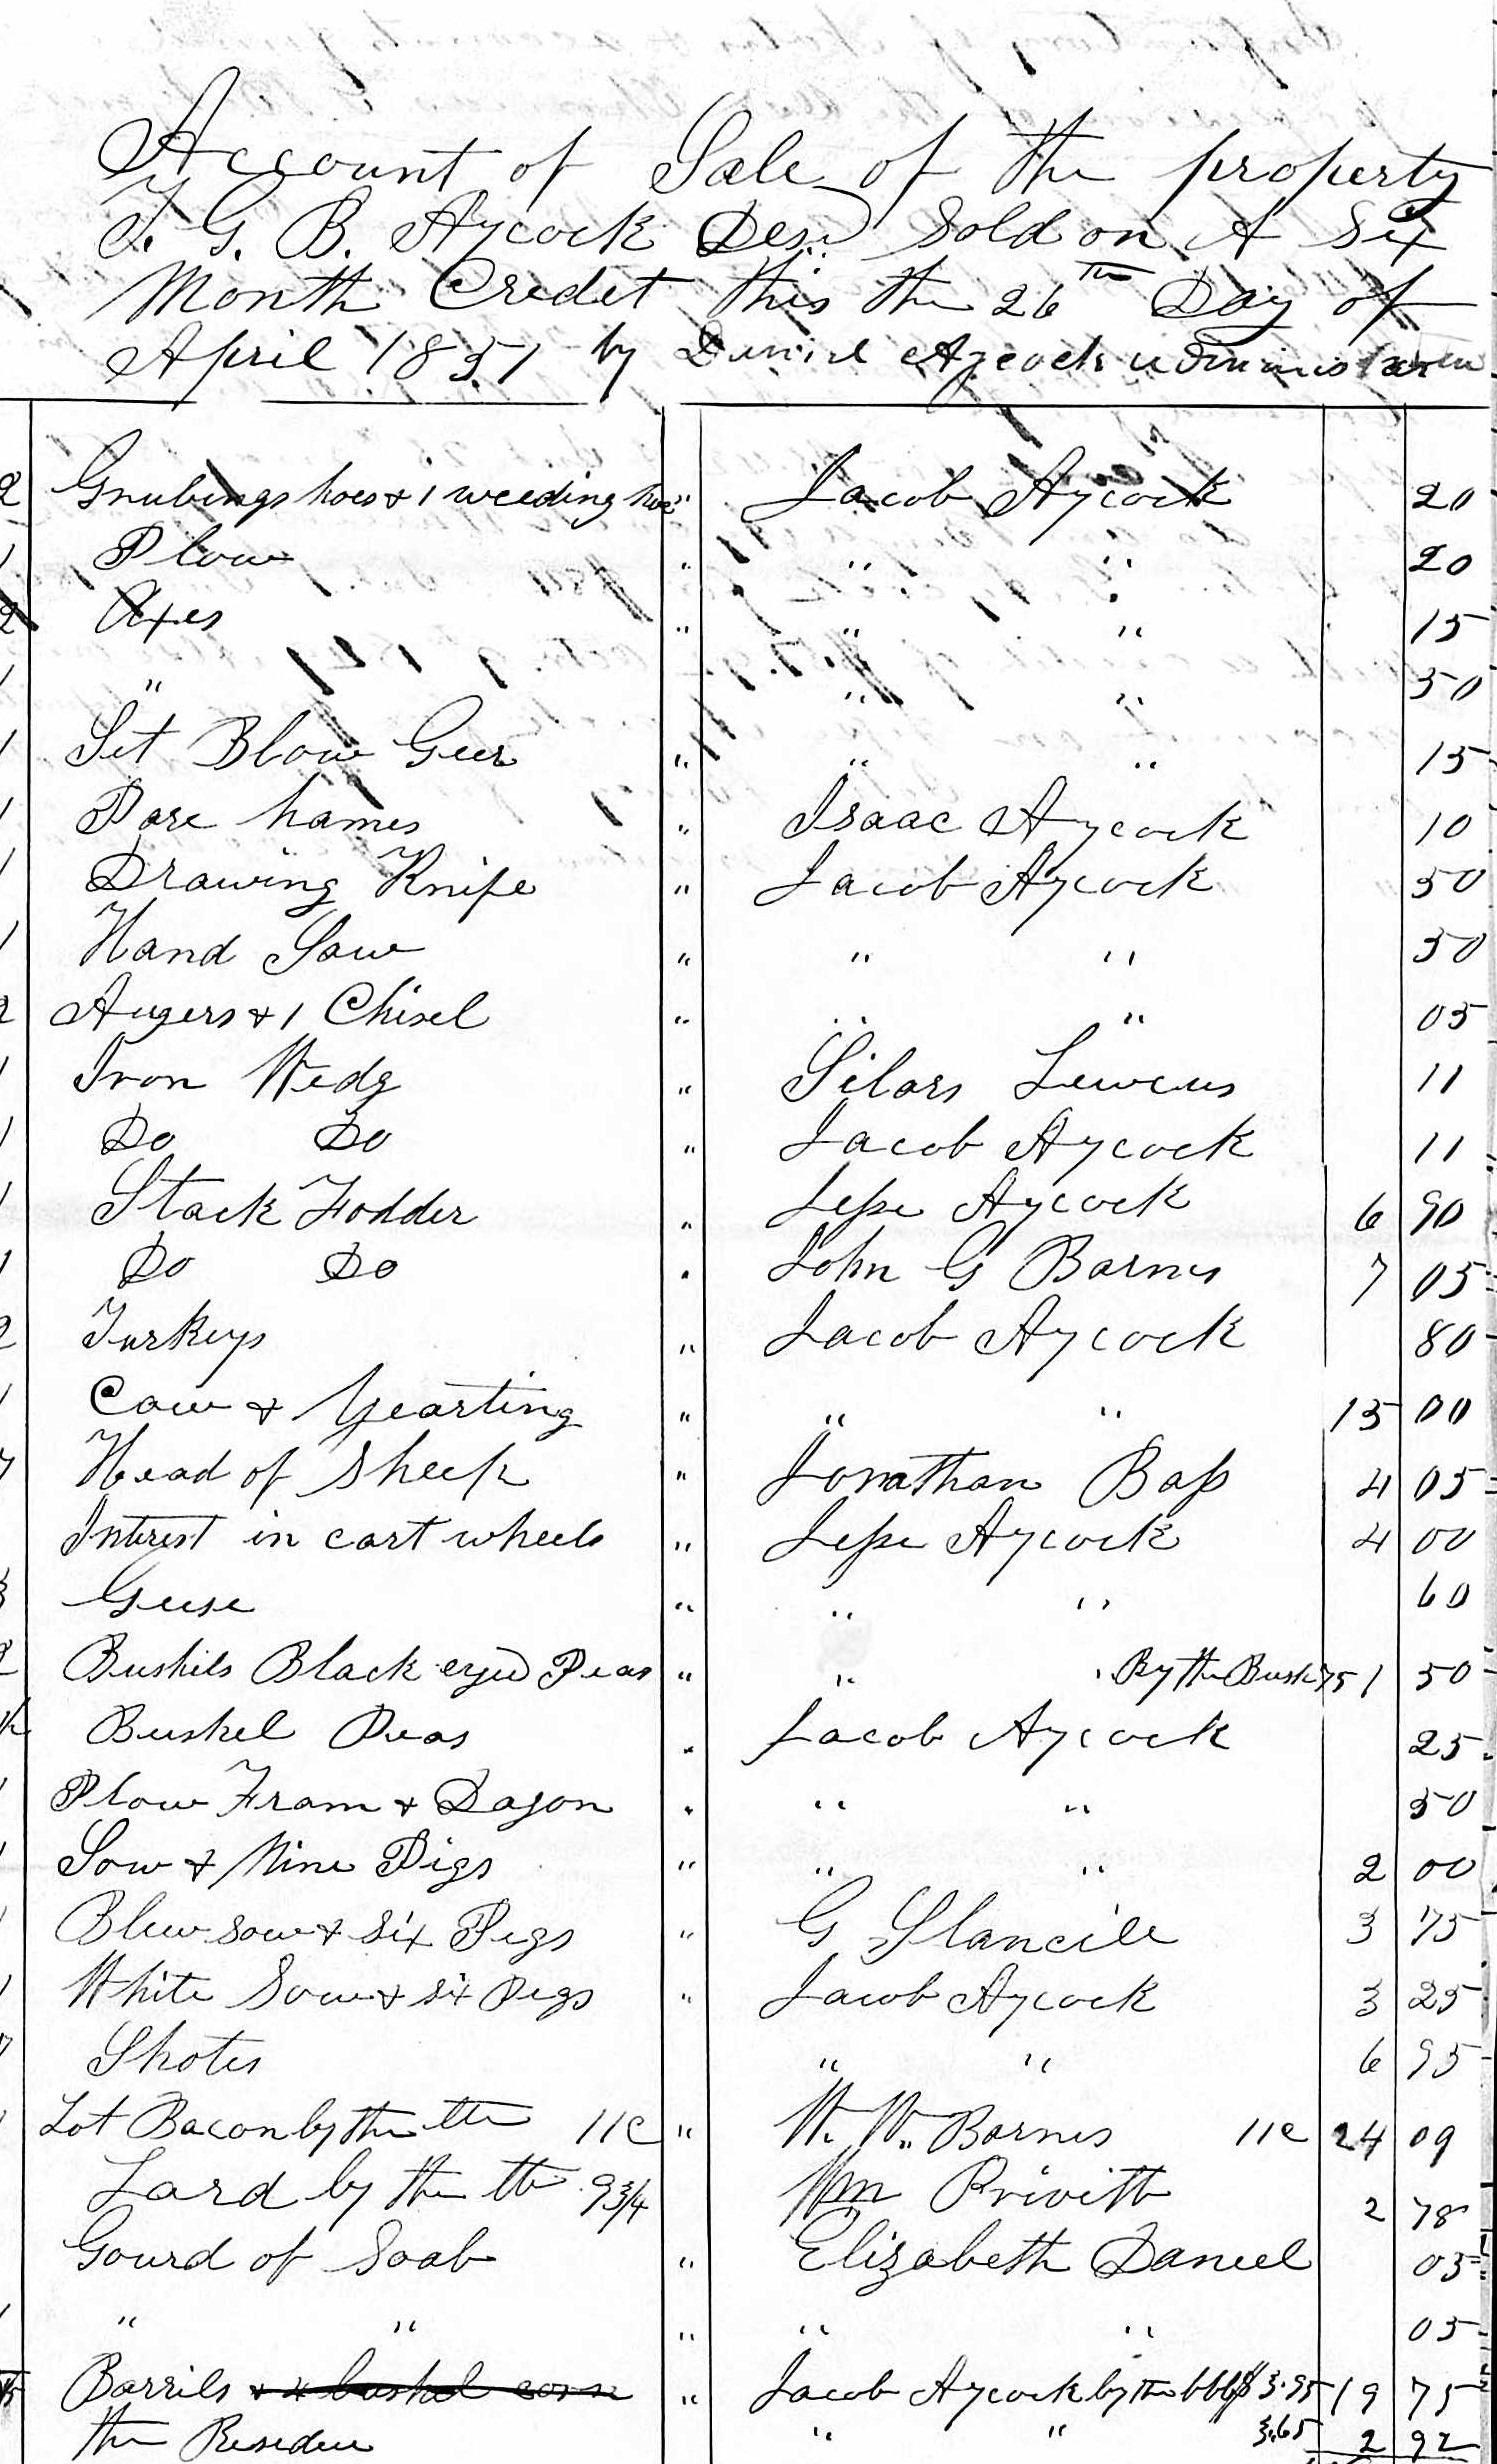 Account of Sale of the property
T. G. B. Aycock Des.d Sold on A Six
Month Credet this the 26th Day of
April 1851 by Daniel Aycock
2 Grubings hoes & 1 weeding hoe " Jacob Aycock 20
1 Plow " " " 20
2 Axes " " " 15
1 " " " 50
1 Set Blow Geer " " " 15
1 Pare hames " Isaac Aycock 10
1 Drawing Knife " Jacob Aycock 50
1 Hand Saw " " " 50
2 Augers & 1 Chisel " " " 05
1 Iron Wedg " Silars 11
1 Do Do " Jacob Aycock 11
1 Stack Fodder " Jesse Aycock 6 90
1 Do Do " John G Barnes 7 05
2 Turkeys " Jacob Aycock 80
1 Cow & Yearting " " " 15 00
7 Head of Sheep " Jonathan Bass 4 05
Interest in cart wheels " Jesse Aycock 4 00
3 Geese " " " 60
2 Bushils Black eyed Peas " " " By the Bush 75 1 50
Bushel Peas " Jacob Aycock 25
1 Plow Fram & Dagon " " " 50
1 Sow & Nine Pigs " " " 2 00
1 Blew Sow & Six Pigs " G 3 75
1 White Sow & Six Pigs " Jacob Aycock 3 25
7 Shotes " " 6 95
1 Lot Bacon by the lb 11c " W. W. Barnes 11c 24 09
Lard by the lb 9 3/4 Wm Privitt 2 78
Gourd of Soab " Elizabeth Daniel 05
1 " " " " " 05
Barrils & 4 bushel corn " Jacob Aycock by the bbl $3.95 19 75
the Resedue " " 3.65 2 92